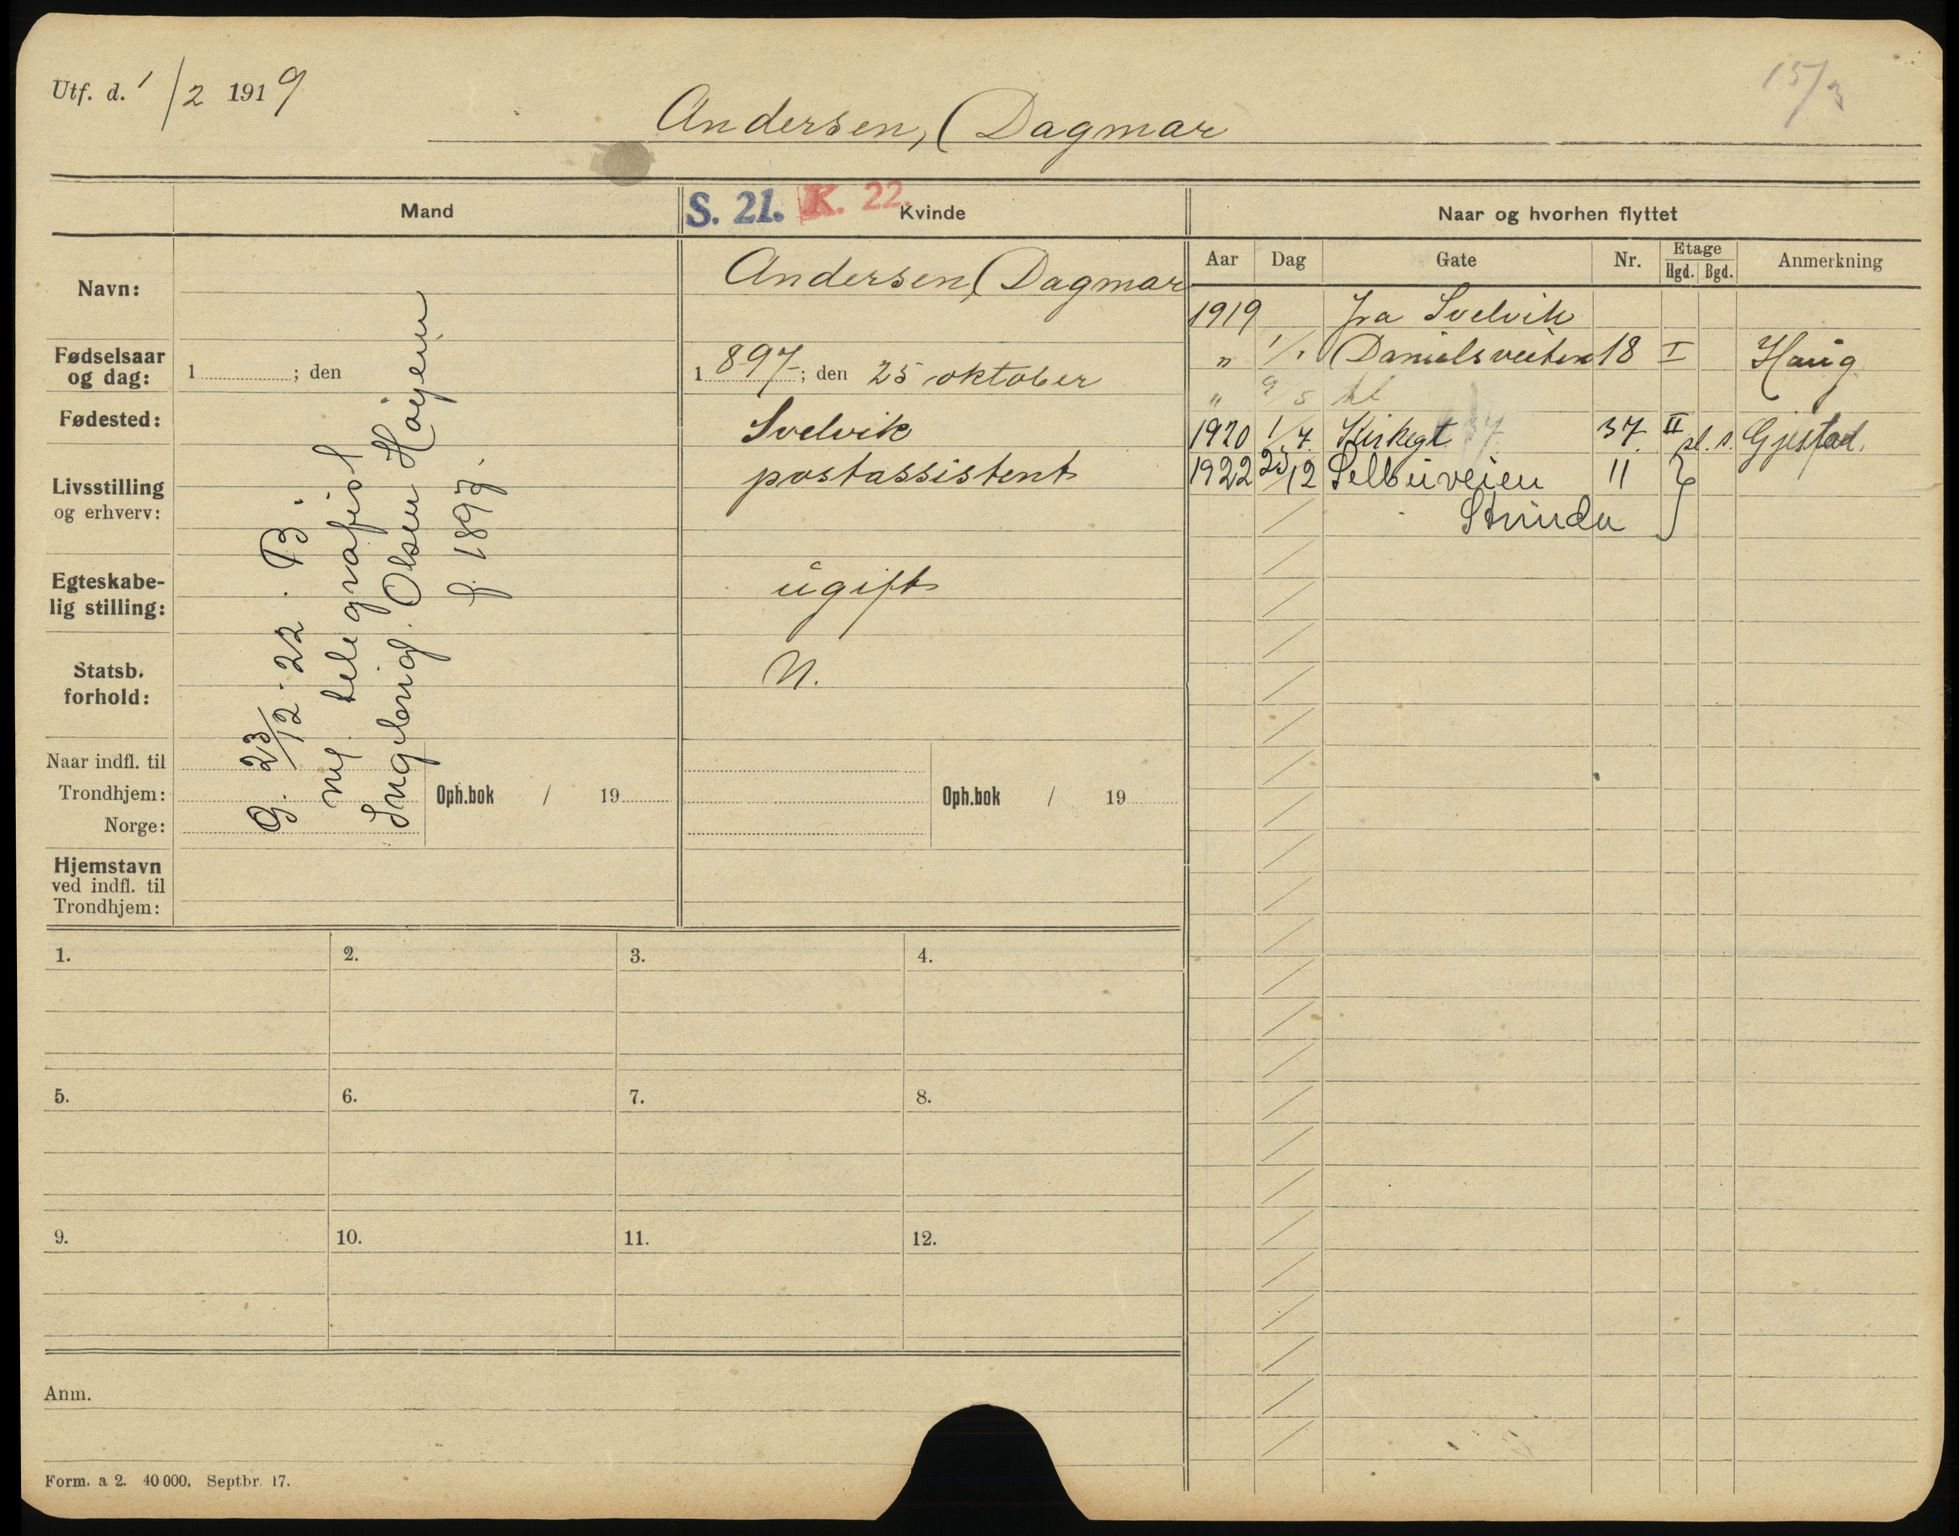 Utf. d. 1/2 1919
15/3
Andersen, Dagmar
Mand
S. 21. K. 22.
Kvinde
Naar og hvorhen flyttet
Navn:
Andersen, Dagmar
Aar Dag Gate Nr. Etage Hgd. Bgd. Anmerkning
1919 fra Svelvik
Fødselsaar og dag:
1 ; den
1897 ; den 25 oktober
" 1/1 Danielsveiten 18 I Haug
" 9/5 hl
Fødested:
Svelvik
1920 1/7 Kirkegt 37 37 II pl. s. Gjestad.
Livsstilling
og erhverv:
postassistent
1922 23/12 Selbuveien 11
Strinda
Egteskabe-
lig stilling:
ugift
Statsb.
forhold:
N.
g. 23/12 - 22. B.
m/ telegrafist
Ingebrigt. Olsen Højem
f. 1897.
Naar indfl. til
Trondhjem:
Norge:
Oph.bok / 19
Oph.bok / 19
Hjemstavn
ved indfl. til
Trondhjem:
1. 2. 3. 4.
5. 6. 7. 8.
9. 10. 11. 12.
Anm.
Form. a 2. 40 000. Septbr. 17.